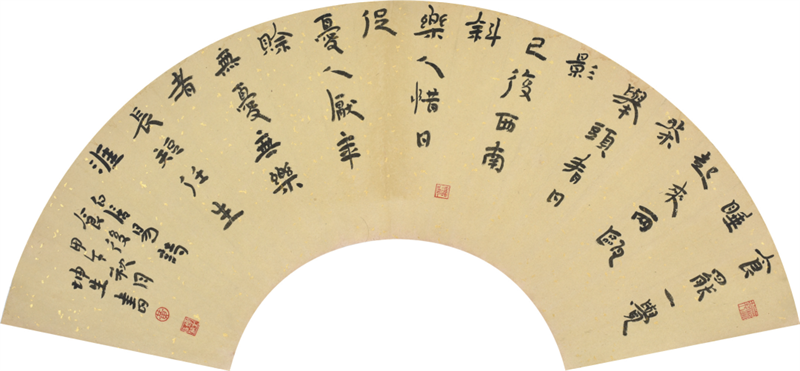 食罷一覺
睡
起來兩甌
茶
舉頭看日
影
已復西南
斜
樂人惜日
促
憂人厭年
賒
無憂無樂
者
長短任生
涯
白居易詩
食後
甲午秋月
坤生書